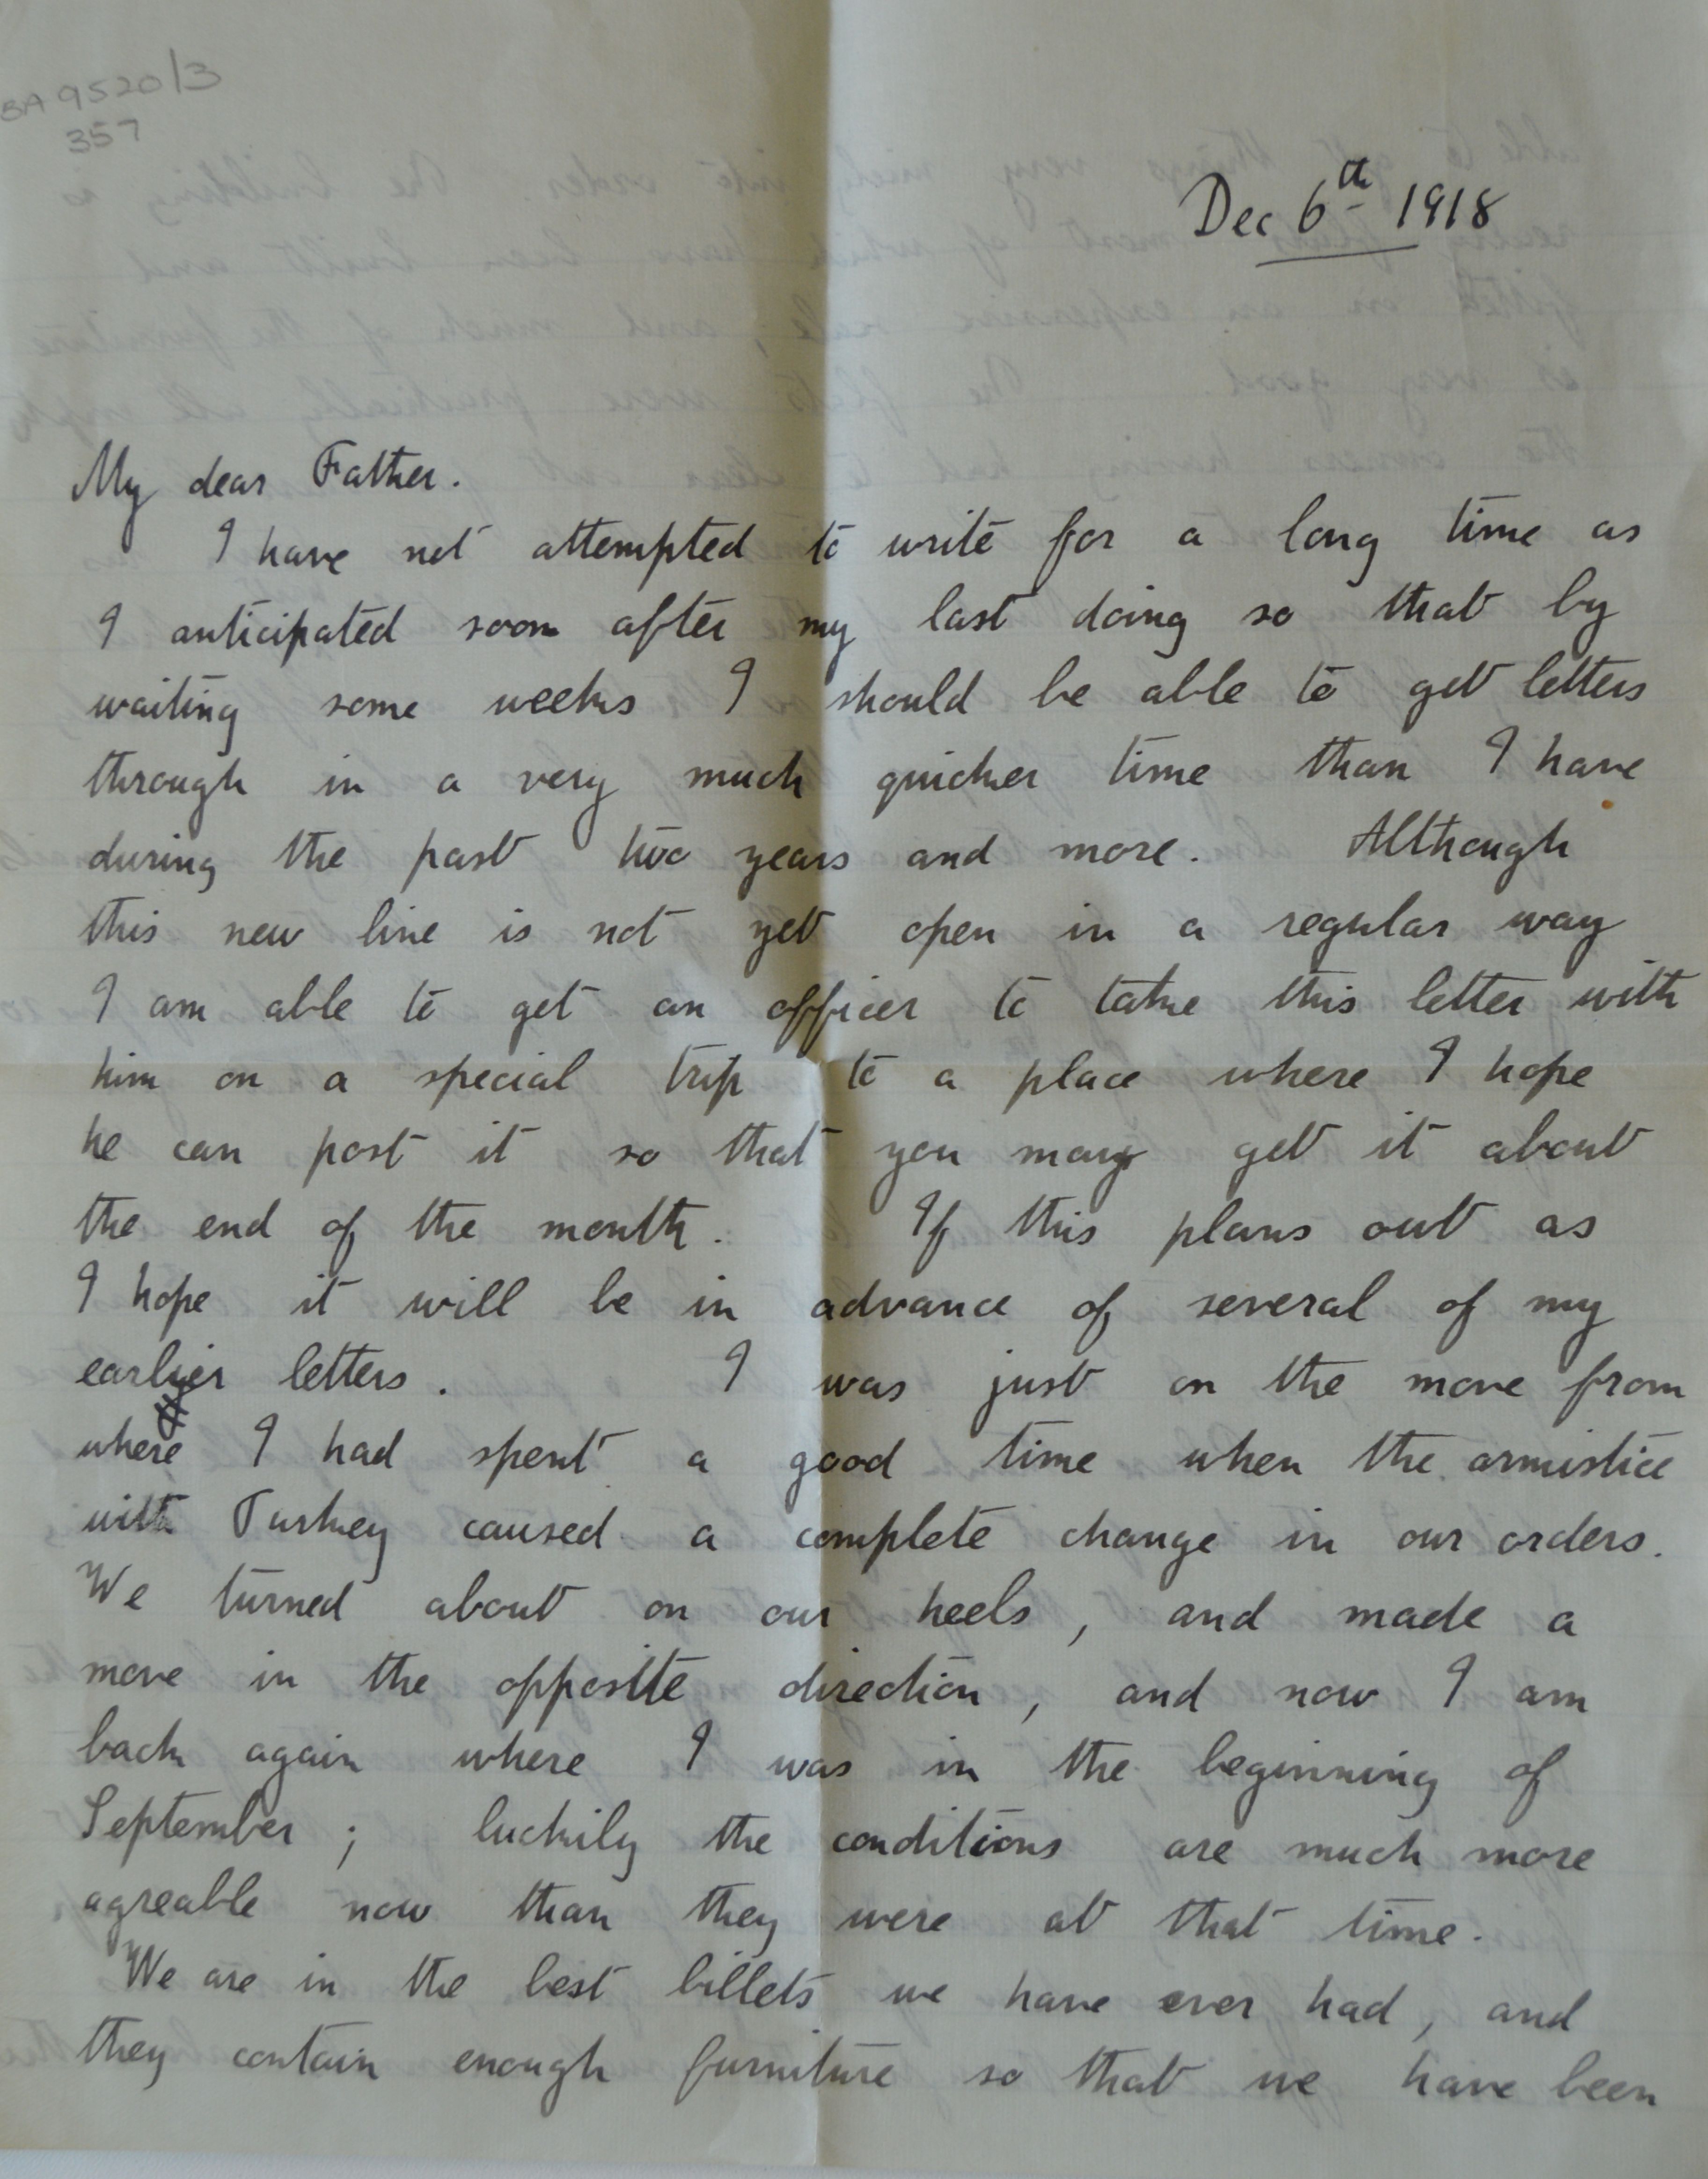 BA 9520/3
357
Dec 6th 1918
My dear Father.
I have not attempted to write for a long time as
I anticipated soon after my last doing so that by
waiting some weeks I should be able to get letters
through in a very much quicker time than I have
during the past two years and more. Although
this new line is not yet open in a regular way
I am able to get an officer to take this letter with
him on a special trip to a place where I hope
he can post it so that you may get it about
the end of the month. If this plans out as
I hope it will be in advance of several of my
earlier letters. I was just on the move from
where I had spent a good time when the armistice
with Turkey caused a complete change in our orders.
We turned about on our heels, and made a
move in the opposite direction, and now I am
back again where I was in the beginning of
September; luckily the conditions are much more
agreable now than they were at that time.
We are in the best billets we have ever had, and
they contain enough furniture so that we have been